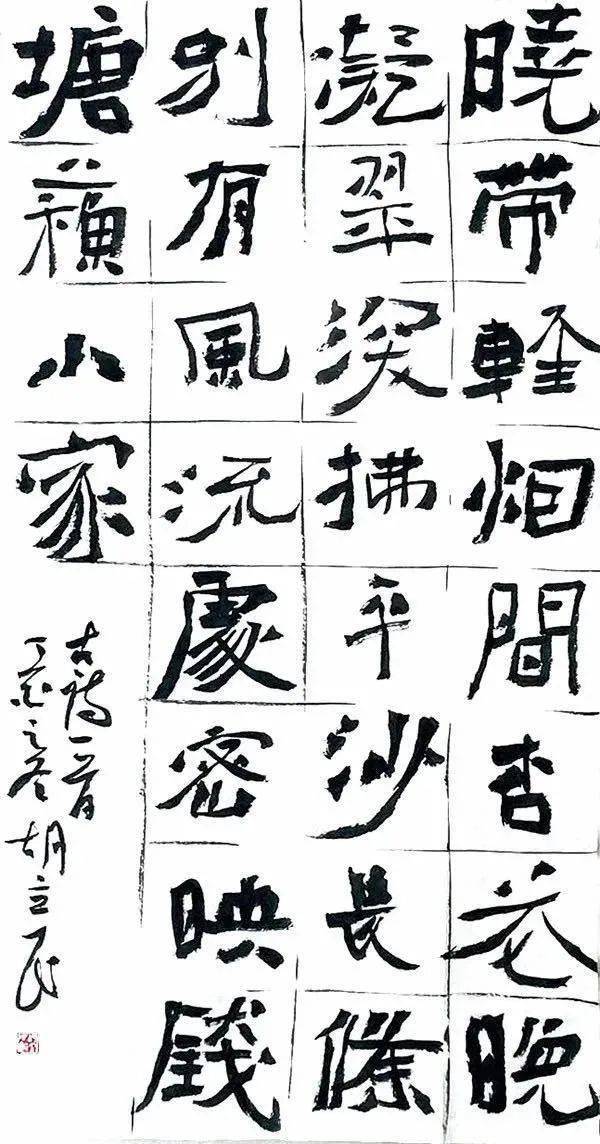 曉帶輕烟間杏花晚
凝翠深拂平沙長條
別有風流處密映錢
塘蘇小家
古詩一首
丁之冬胡立民